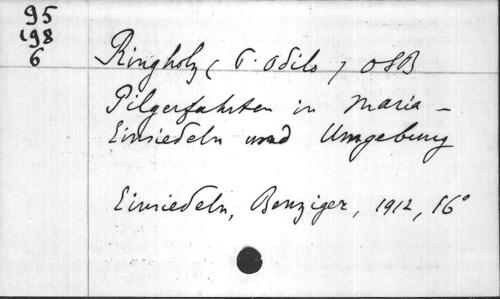 95
198
6
Ringholz (P. Odilo) OSB
Pilgerfahrten in Maria-
Einsiedeln und Umgebung
Einsiedeln, Benziger, 1912, 16°